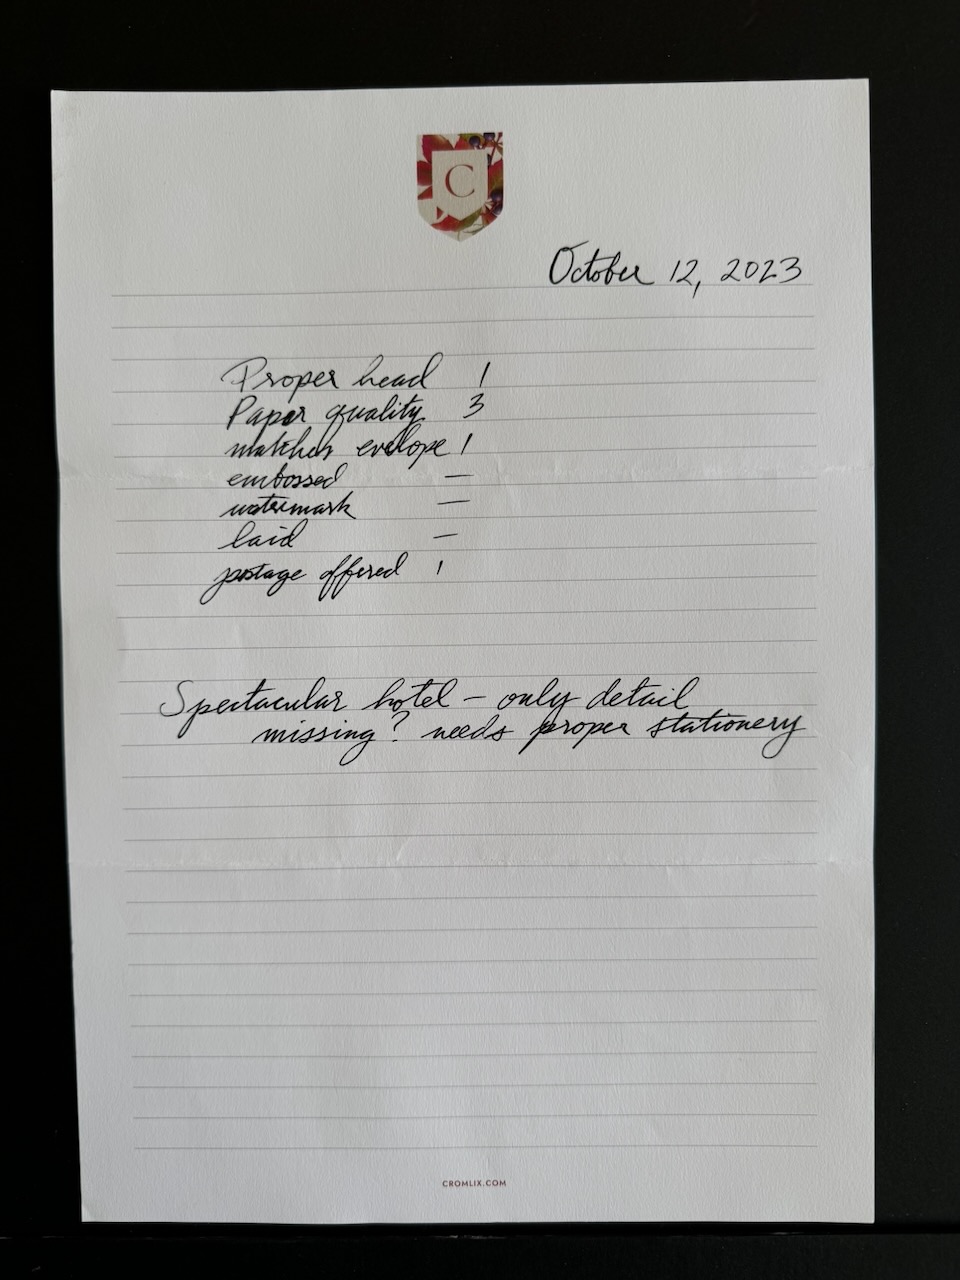 C
October 12, 2023
Proper head 1
Paper quality 3
matches evelope 1
embossed —
watermark —
laid —
postage offered 1
Spectacular hotel – only detail
missing? needs proper stationery
CROMLIX.COM